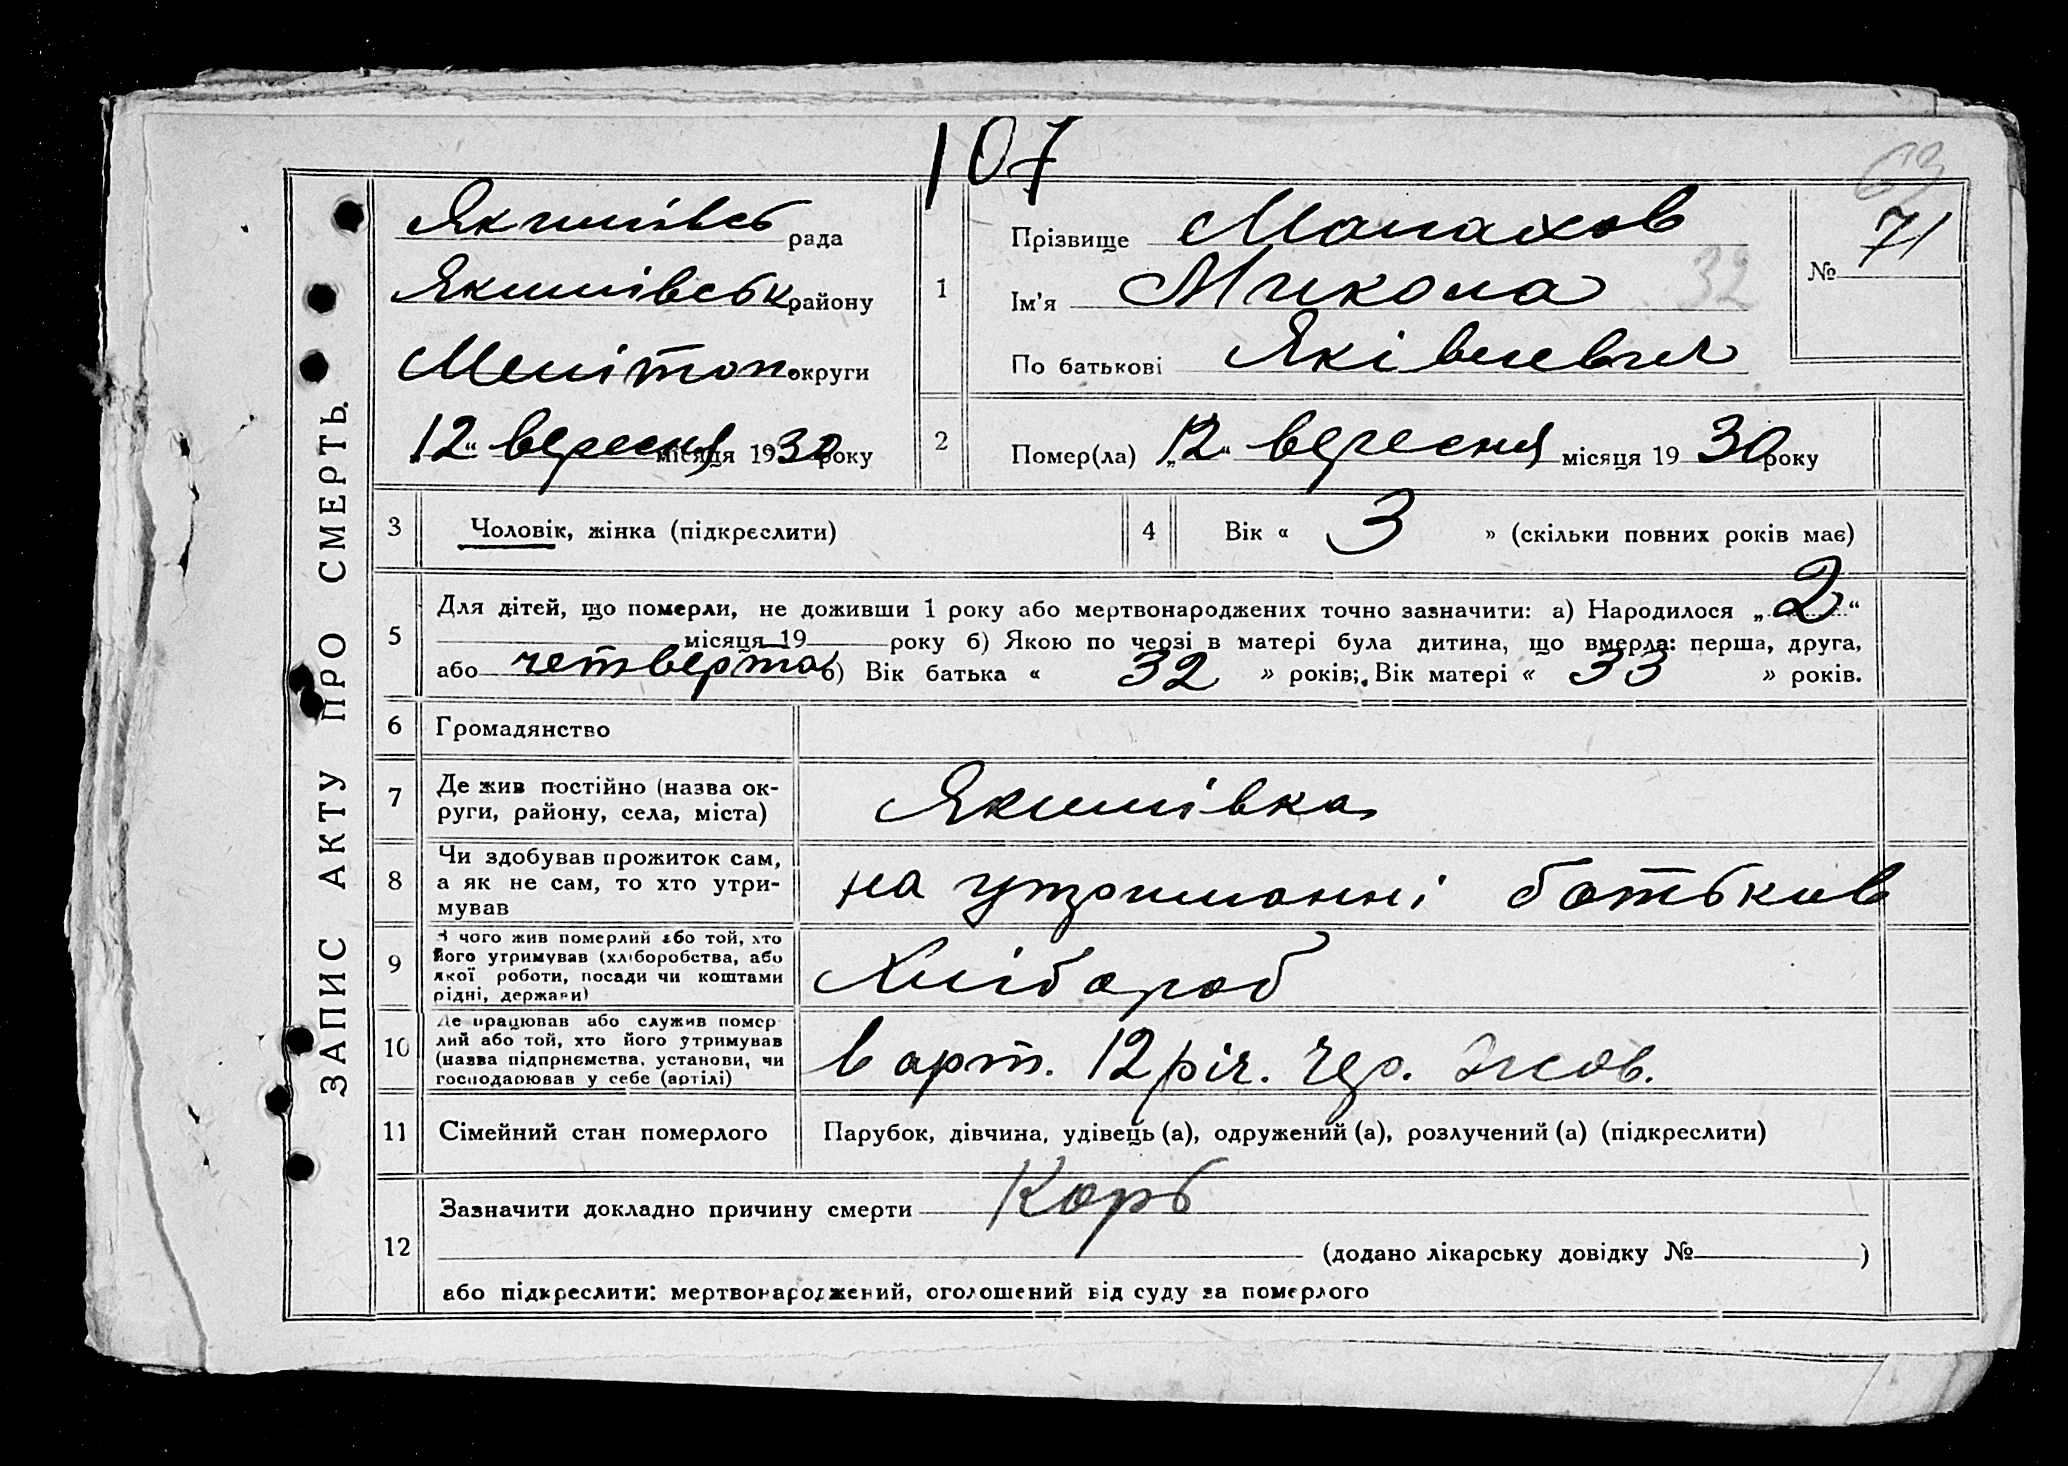 107
63
ЗАПИС АКТУ ПРО СМЕРТЬ.
Якимівсь рада
Якимівськ району
Меліտоп. округи
„12“ вересня місяця 1930 року
1
Прізвище Малахов
Ім'я Микола 32
По батькові Яківлевич
№ 71
2
Помер(ла) „12“ вересня місяця 1930 року
3
Чоловік, жінка (підкреслити)
4
Вік « 3 » (скільки повних років має)
5
Для дітей, що померли, не доживши 1 року або мертвонароджених точно зазначити: а) Народилося „2“
місяця 19 року б) Якою по черзі в матері була дитина, що вмерла: перша, друга,
або четверта в) Вік батька « 32 » років; Вік матері « 33 » років.
6
Громадянство
7
Де жив постійно (назва ок-
руги, району, села, міста)
Якимівка
8
Чи здобував прожиток сам,
а як не сам, то хто утри-
мував
на утриманні батьків
9
З чого жив померлий або той, хто
його утримував (хліборобства, або
якої роботи, посади чи коштами
рідні, держави)
Хлібороб
10
Де працював або служив помер-
лий або той, хто його утримував
(назва підприємства, установи, чи
господарював у себе (артілі)
в арт. 12 річ. чер. Жов.
11
Сімейний стан померлого
Парубок, дівчина, удівець (а), одружений (а), розлучений (а) (підкреслити)
12
Зазначити докладно причину смерти Корь
(додано лікарську довідку № )
або підкреслити: мертвонароджений, оголошений від суду за померлого